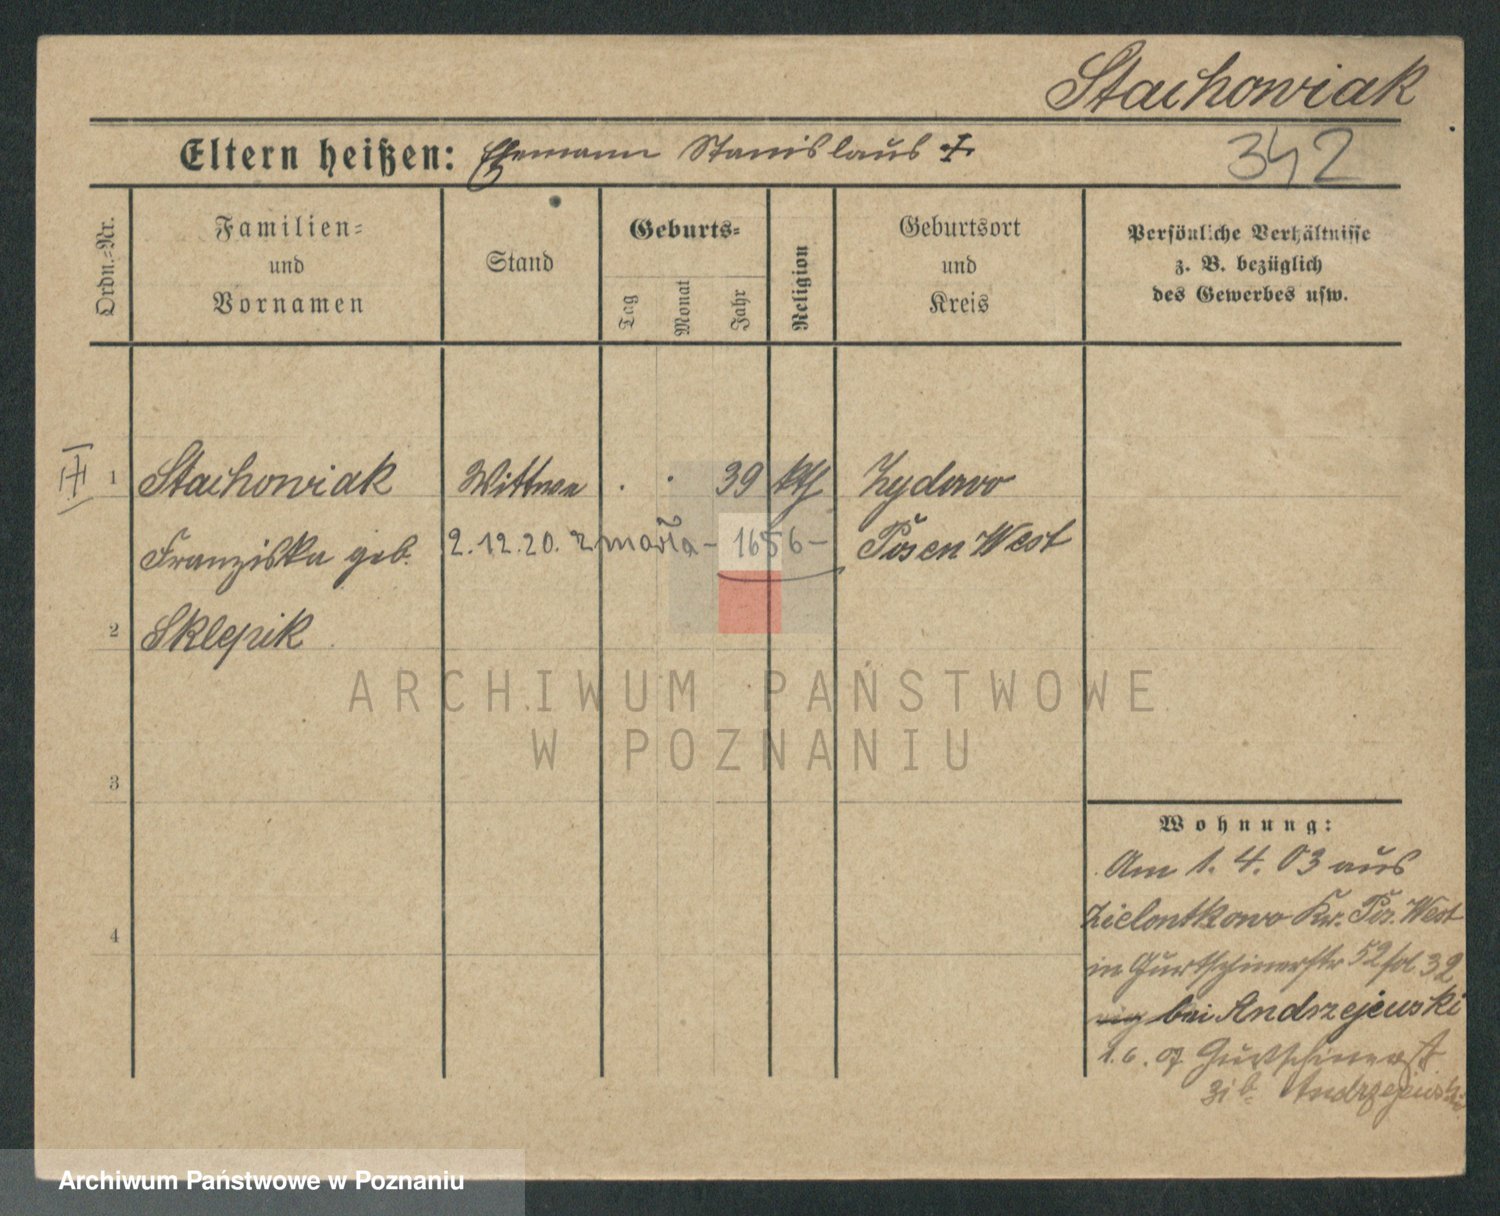 Stachowiak
Eltern heißen: Ehemann Stanislaus †
342
Ordn.-Nr.
Familien-
und
Vornamen
Stand
Geburts-
Tag
Monat
Jahr
Religion
Geburtsort
und
Kreis
Persönliche Verhältnisse
z. B. bezüglich
des Gewerbes usw.
1 Stachowiak Wittwe . . 39 kth Zydowo
Franziska geb. 2.12.20. zmarła - 1656 - Posen West
2 Sklepik
3
4
ARCHIWUM PAŃSTWOWE
W POZNANIU
Wohnung:
Am 1. 4. 03 aus
Zielontkowo Kr. Pos. West
in Gurtschinerstr 52 32
bei Andrzejewski
1. 6. 07 Gurtschinerst
Andrzejewski
Archiwum Państwowe w Poznaniu